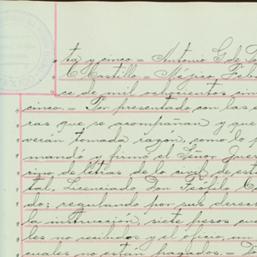 ta y cinco = Antonio G. de
C. Castillo = Méjico, Febre
ce de mil ochocientos cin
cinco. = Por presentado con las
ras que se acompañan y que
verán tomada razon, como lo p
mandó y firmó el Señor Juez
simo de letras de lo civil de es
tal, Licenciado Don Teófilo C
do; regulando por sus derech
la instruccion, siete pesos qu
les no recibidos y el oficio, un
cuales no están pagados. = D